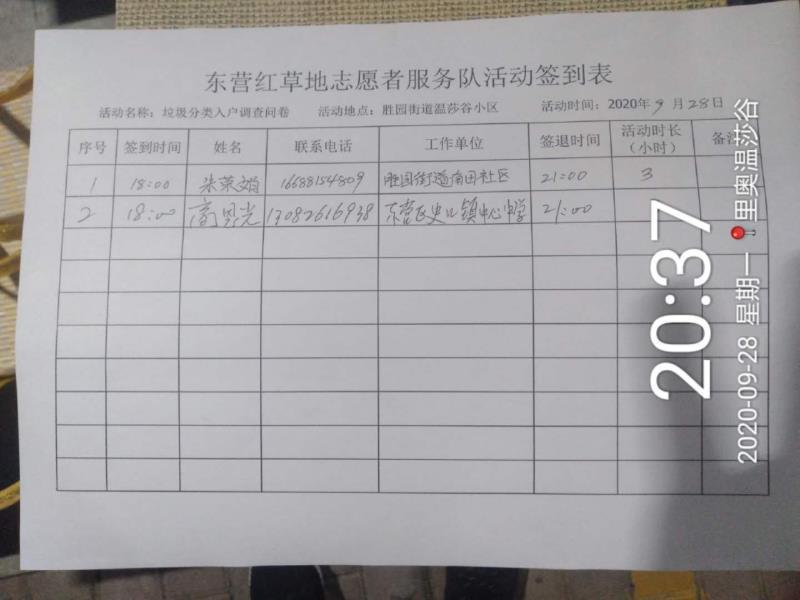 东营红草地志愿者服务队活动签到表
活动名称：垃圾分类入户调查问卷 活动地点：胜园街道温莎谷小区 活动时间：2020年9月28日
序号 签到时间 姓名 联系电话 工作单位 签退时间 活动时长（小时） 备注
1 18:00 朱荣娟 16688154809 胜园街道南田社区 21:00 3
2 18:00 高 光 13082616938 东营区史口镇中心中学 21:00
20:37
2020-09-28 星期一 里奥温莎谷